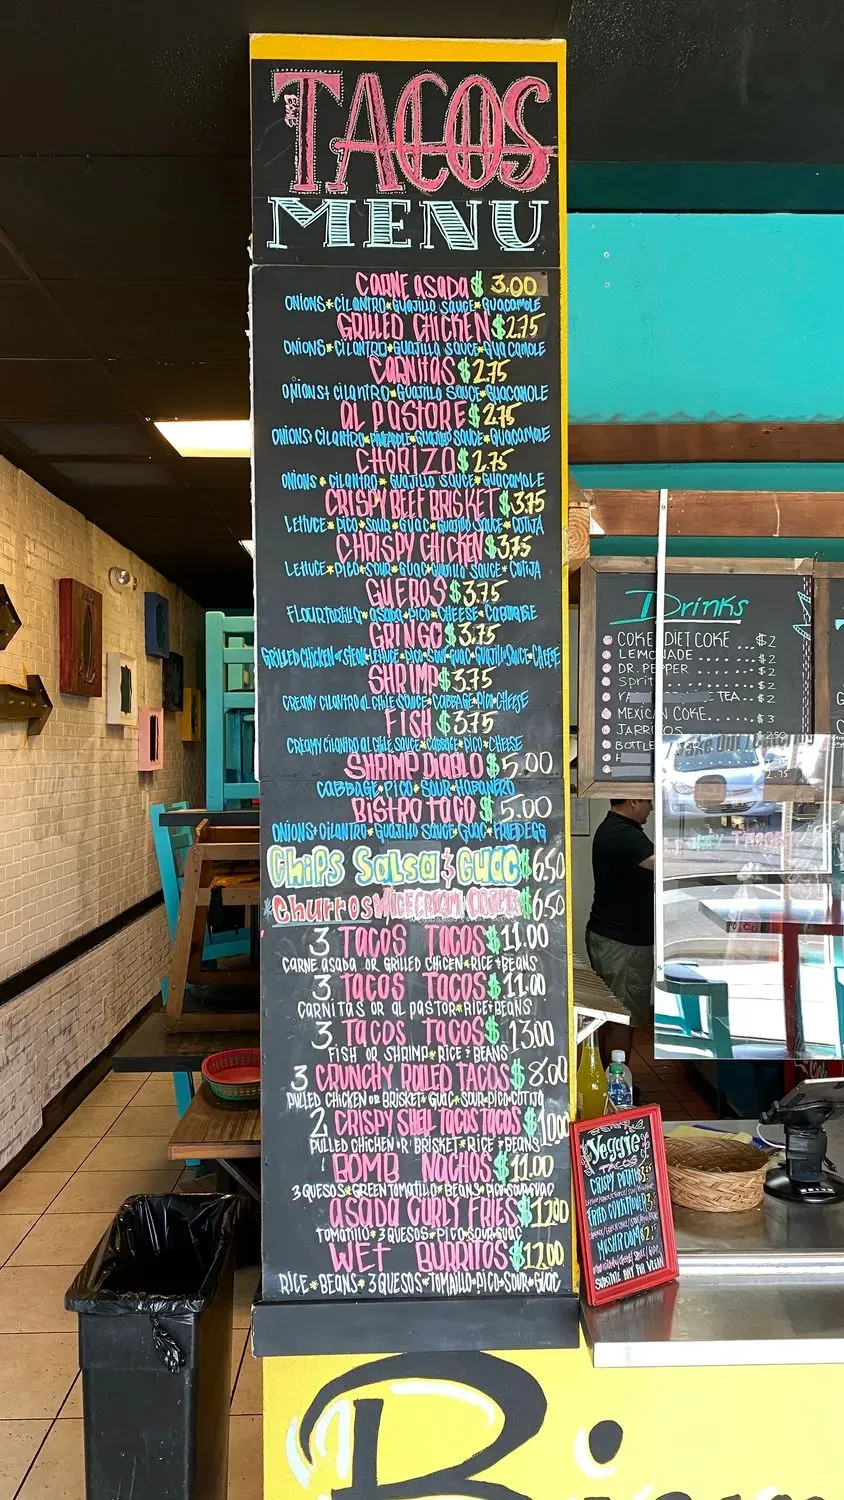 TACOS
MENU
CARNE ASADA $ 3.00
ONIONS*CILANTRO*GUAJILLO SAUCE*GUACAMOLE
GRILLED CHICKEN $2.75
ONIONS*CILANTRO*GUAJILLO SAUCE*GUACAMOLE
CARNITAS $2.75
ONIONS*CILANTRO*GUAJILLO SAUCE*GUACAMOLE
AL PASTORE $2.75
ONIONS*CILANTRO*PINEAPPLE*GUAJILLO SAUCE*GUACAMOLE
CHORIZO $2.75
ONIONS*CILANTRO*GUAJILLO SAUCE*GUACAMOLE
CRISPY BEEF BRISKET $3.75
LETTUCE*PICO*SOUR*GUAC*GUAJILLO SAUCE*COTIJA
CHRISPY CHICKEN $3.75
LETTUCE*PICO*SOUR*GUAC*GUAJILLO SAUCE*COTIJA
GUEROS $3.75
FLOUR TORTILLA*ASADA*PICO*CHEESE*CABBAGE
GRINGO $3.75
GRILLED CHICKEN or STEAK*LETTUCE*PICO*SOUR*GUAC*GUAJILLO SAUCE*CHEESE
SHRIMP $3.75
CREAMY CILANTRO AL CHILE SAUCE*CABBAGE*PICO*CHEESE
FISH $3.75
CREAMY CILANTRO AL CHILE SAUCE*CABBAGE*PICO*CHEESE
SHRIMP DIABLO $5.00
CABBAGE*PICO*SOUR*HABANERO
BISTRO TACO $5.00
ONIONS*CILANTRO*GUAJILLO SAUCE*GUAC*FRIED EGG
Chips Salsa & GUAC $6.50
*Churros ICE CREAM $6.50
3 TACOS TACOS $11.00
CARNE ASADA OR GRILLED CHICEN*RICE*BEANS
3 TACOS TACOS $11.00
CARNITAS OR AL PASTOR*RICE*BEANS
3 TACOS TACOS $13.00
FISH OR SHRIMP*RICE*BEANS
3 CRUNCHY ROLLED TACOS $8.00
PULLED CHICKEN OR BRISKET*GUAC*SOUR*PICO*COTIJA
2 CRISPY SHELL TACOS TACOS $10.00
PULLED CHICHEN OR BRISKET*RICE*BEANS
1 BOMB NACHOS $11.00
3 QUESOS*GREEN TOMATILLO*BEANS*PICO*SOUR*GUAC
ASADA CURLY FRIES $12.00
TOMATILLO*3 QUESOS*PICO*SOUR*GUAC
WET BURRITOS $12.00
RICE*BEANS*3 QUESOS*TOMAILLO*PICO*SOUR*GUAC
Drinks
COKE/DIET COKE ... $2
LEMONADE ....... $2
DR. PEPPER ....... $2
SPRIT ....... $2
TEA.. $2
MEXICAN COKE..... $3
JARRITOS
BOTTLE
Veggie
TACOS
CRISPY POTATO
FRIED
MUSHROOM
Bien